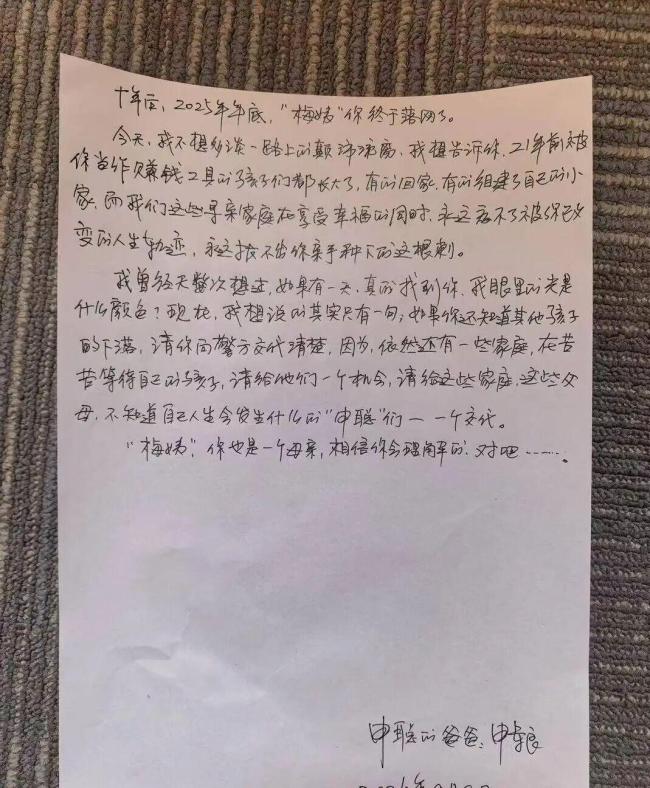 十年后，2025年年底，“梅姨”你终于落网了。
今天，我不想多谈一路上的颠沛流离，我想告诉你，21年前被
你当作赚钱工具的孩子们都长大了，有的回家，有的组建了自己的小
家，而我们这些寻亲家庭在享受幸福的同时，永远忘不了被你改
变的人生轨迹，永远拔不出你亲手种下的这根刺。
我曾经无数次想过，如果有一天，真的找到你，我眼里的光是
什么颜色？现在，我想说的其实只有一句；如果你还知道其他孩子
的下落，请你向警方交代清楚，因为，依然还有一些家庭，在苦
苦等待自己的孩子，请给他们一个机会，请给这些家庭，这些父
母，不知道自己人生会发生什么的“申聪”们一一个交代。
“梅姨”，你也是一个母亲，相信你会理解的，对吧……。
申聪的爸爸：申军良